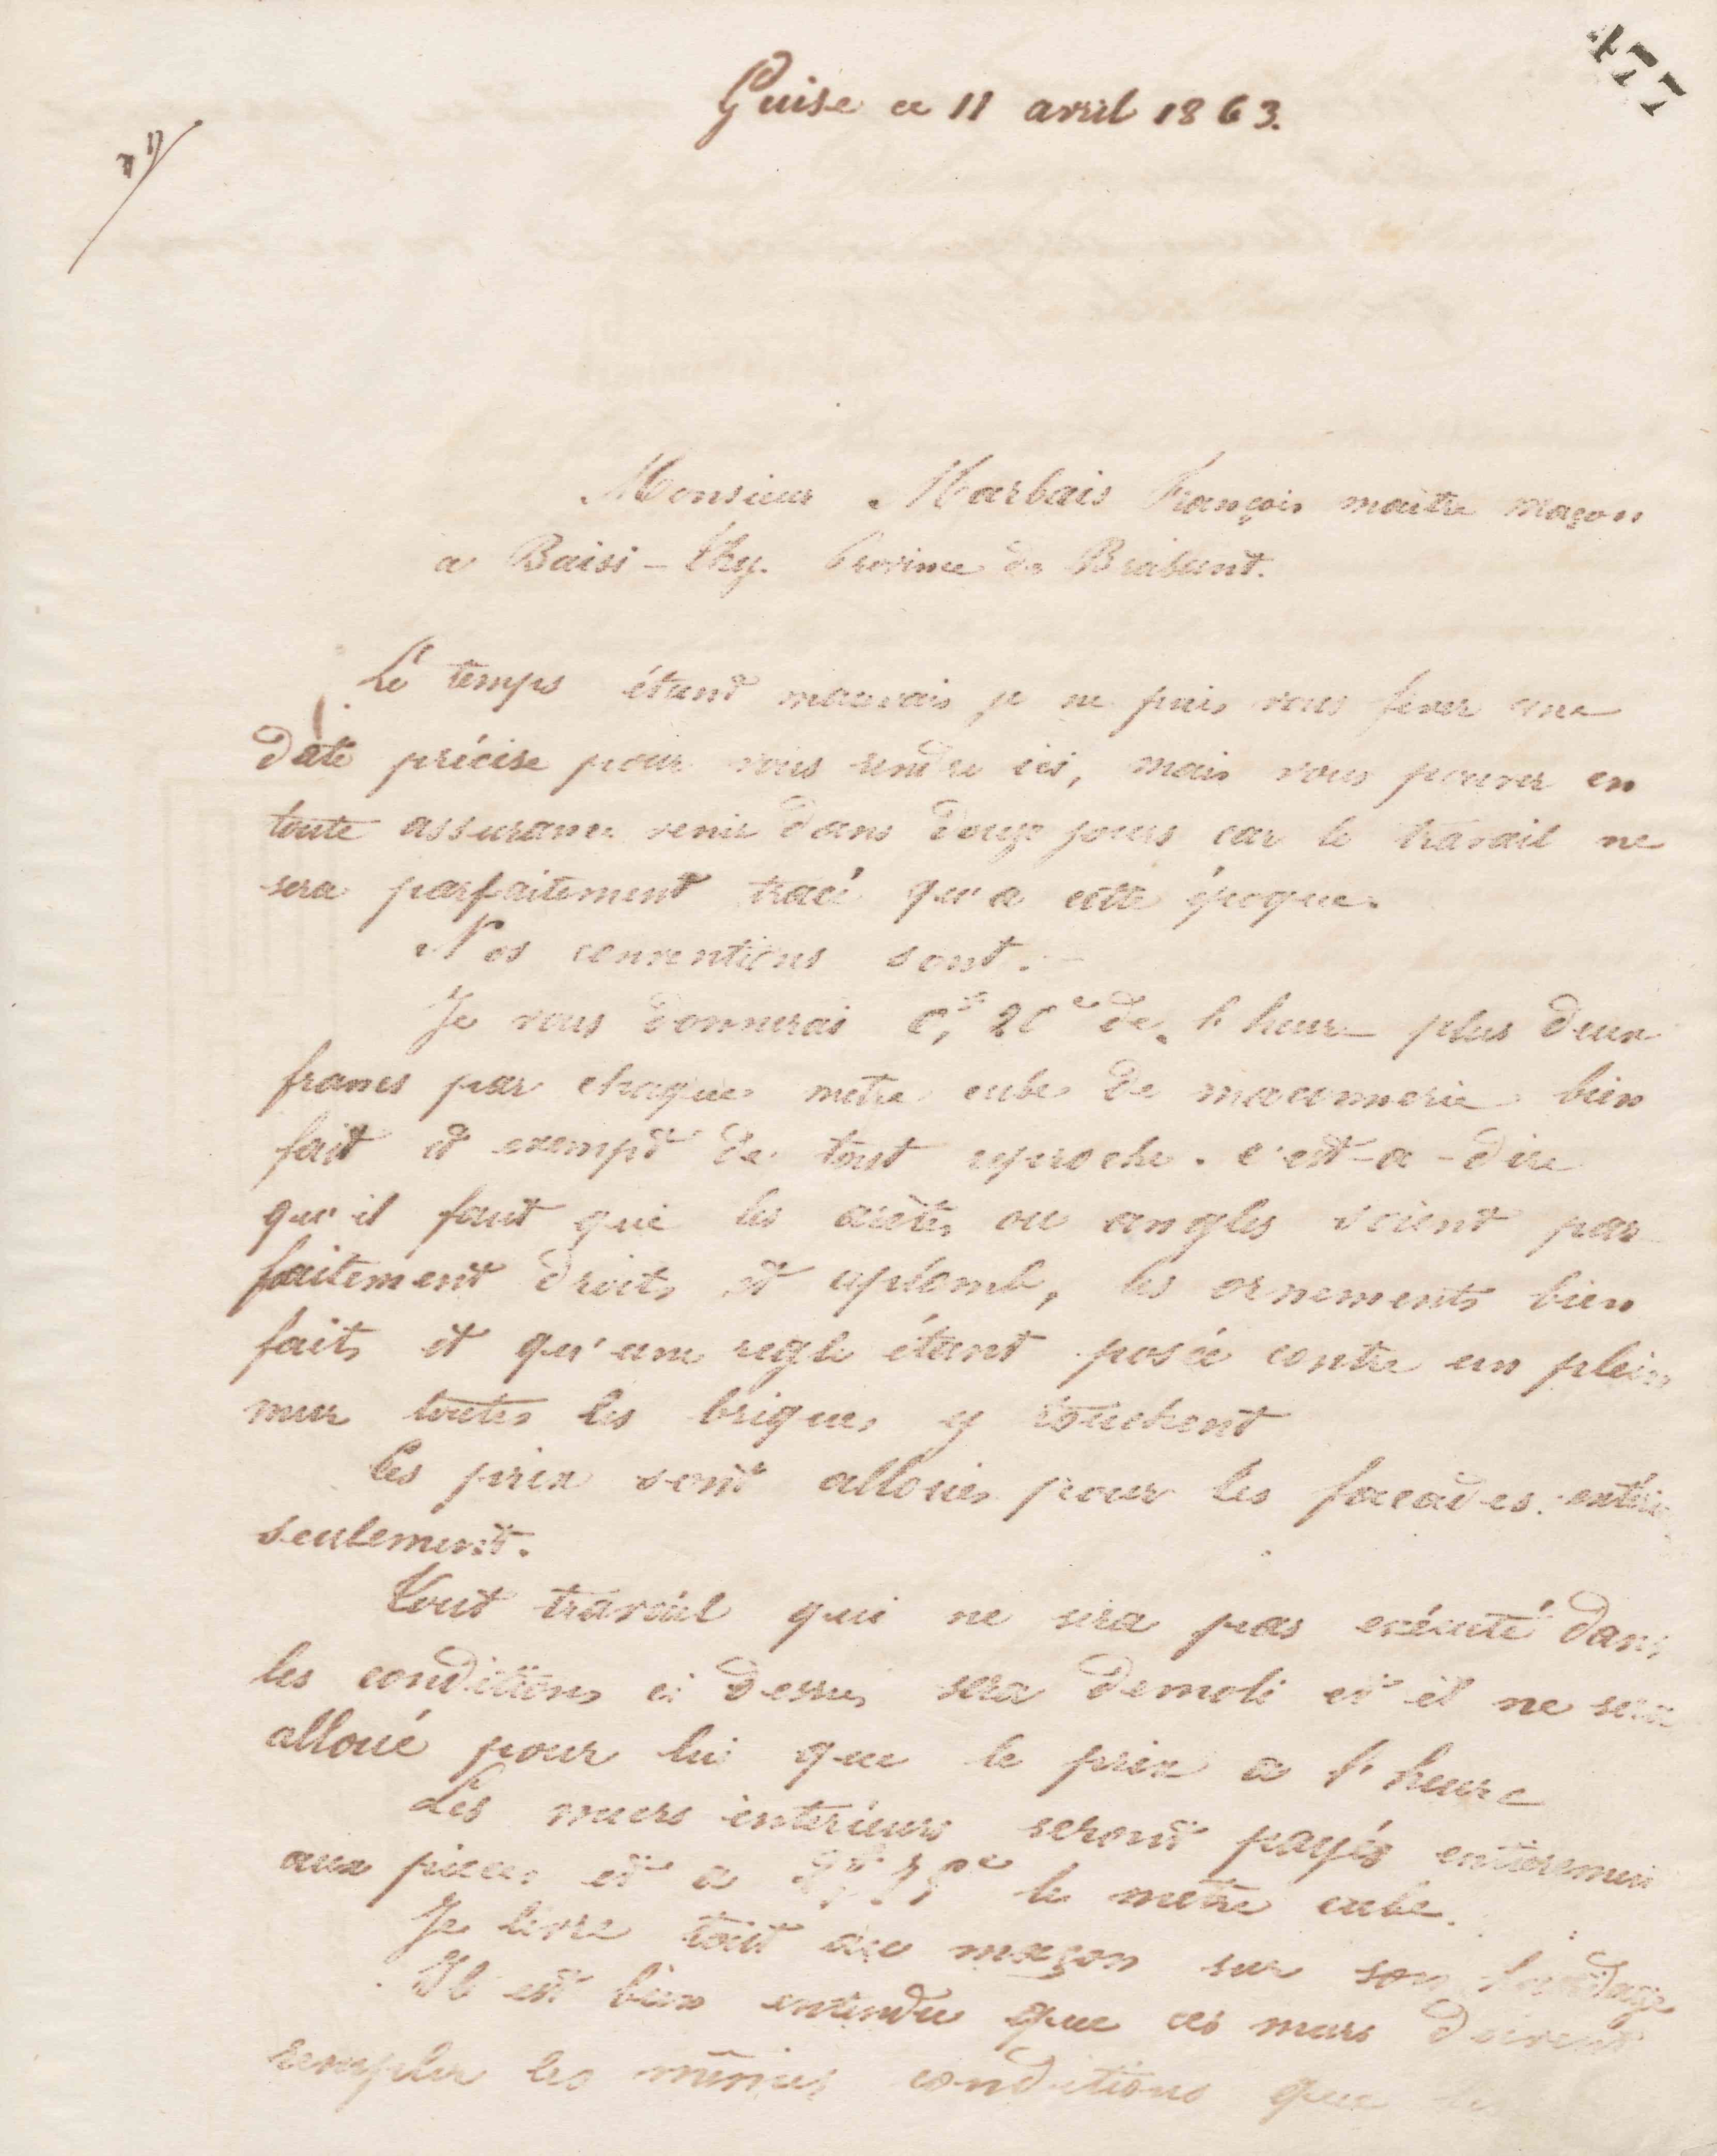 477
Guise ce 11 avril 1863.
Monsieur Marbais François maitre maçon
a Baisi-Thy. Province de Brabant.
Le temps étant mauvais je ne puis vous fixer une
date précise pour vous rendre ici, mais vous pouvez en
toute assurance venir dans douze jours car le travail ne
sera parfaitement tracé qu'a cette époque.
Nos conventions sont.
Je vous donnerai 0,f 20c de l'heure plus deux
francs par chaque metre cube de maconnerie bien
fait et exempt de tout reproche. c'est-a-dire
qu'il faut que les arètes ou angles soient par
faitement droits et aplomb, les ornements bien
faits et qu'une regle étant posée contre un plein
mur toutes les briques y touchent
Ces prix sont alloués pour les facades
seulement.
Tout travail qui ne sera pas exécuté dans
les conditions ci dessus sera demoli et il ne sera
alloué pour lui que le prix a l'heure
Les murs interieurs seront payés entierement
aux pieces et a le metre cube.
Je livre tout au maçon sur son
Il est bien entendu que ces murs doivent
remplir les mêmes conditions que